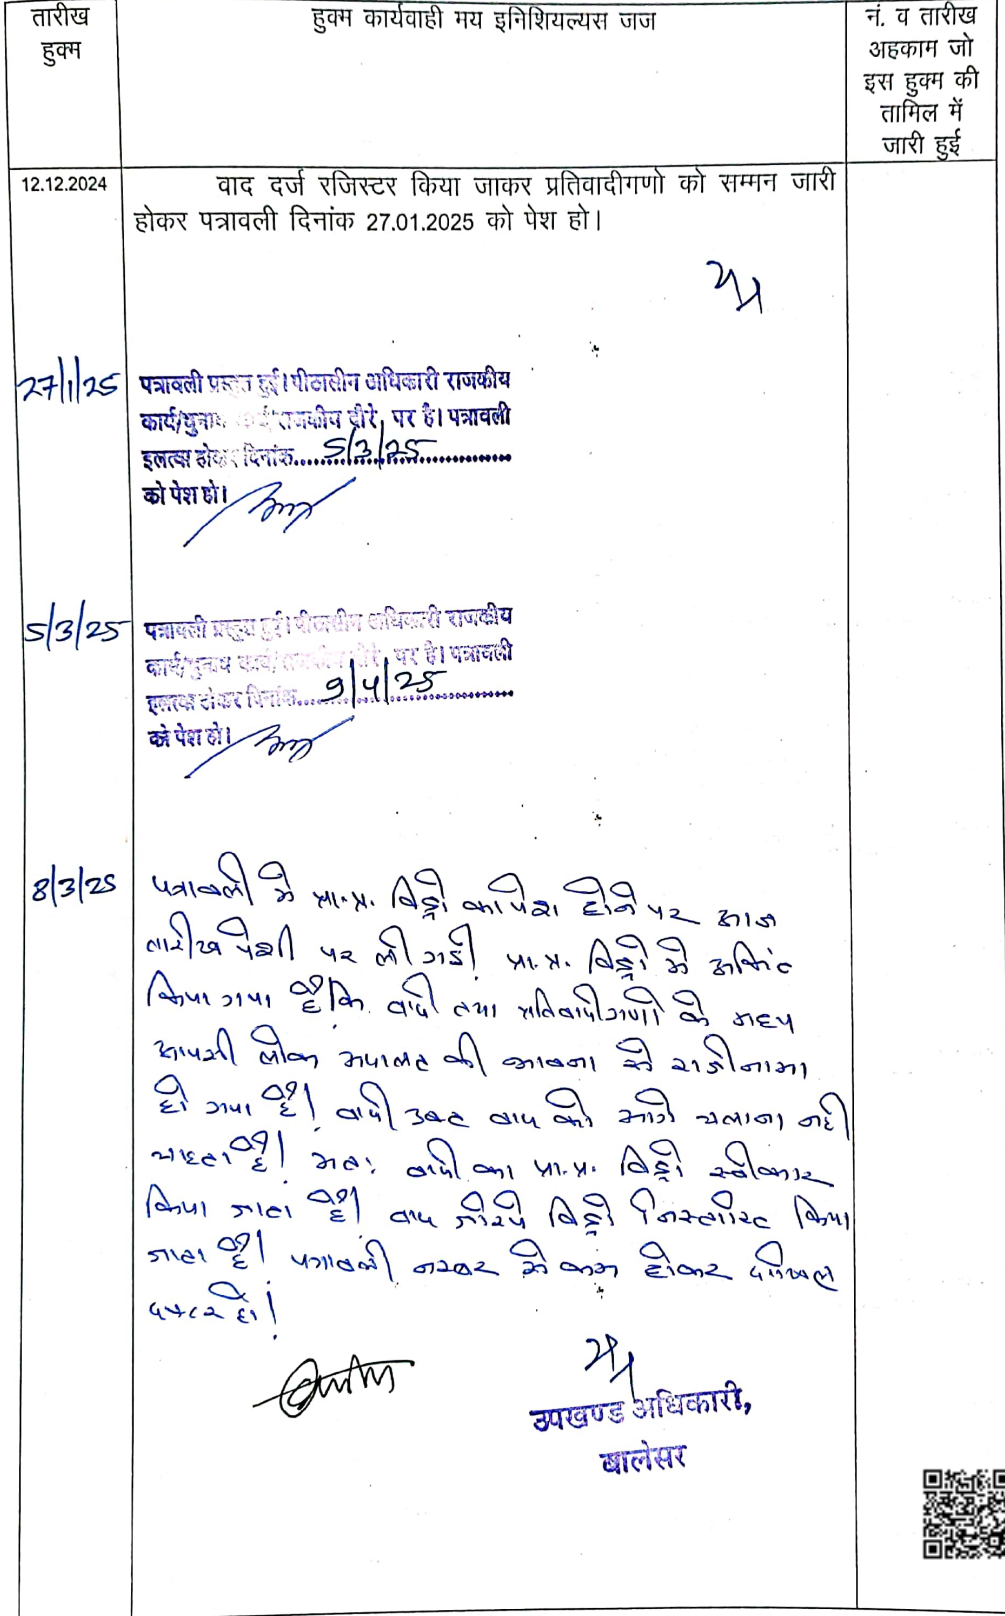 तारीख
हुक्म
हुक्म कार्यवाही मय इनिशियल्यस जज
नं. व तारीख
अहकाम जो
इस हुक्म की
तामिल में
जारी हुई
12.12.2024
वाद दर्ज रजिस्टर किया जाकर प्रतिवादीगणो को सम्मन जारी
होकर पत्रावली दिनांक 27.01.2025 को पेश हो।
27/1/25
पत्रावली प्रस्तुत हुई। पीठासीन अधिकारी राजकीय
कार्य/चुनाव कार्य/राजकीय दौरे पर है। पत्रावली
इलत्वा होकर दिनांक 5/3/25
को पेश हो।
5/3/25
पत्रावली प्रस्तुत हुई। पीठासीन अधिकारी राजकीय
कार्य/चुनाव कार्य/राजकीय दौरे पर है। पत्रावली
इलत्वा होकर दिनांक 9/4/25
को पेश हो।
8/3/25
पत्रावली मे प्रा.प्र. विड्रो का पेश होने पर आज
तारीख पेशी पर ली गई। प्रा.प्र. विड्रो मे अंकित
किया गया है कि वादी तथा प्रतिवादीगणो के मध्य
आपसी लोक अदालत की भावना से राजीनामा
हो गया है। वादी उक्त वाद को आगे चलाना नही
चाहता है। अतः वादी का प्रा.प्र. विड्रो स्वीकार
किया जाता है। वाद जरिये विड्रो निस्तारित किया
जाता है। पत्रावली नम्बर से कम होकर दाखिल
दफ्तर हो।
उपखण्ड अधिकारी,
बालेसर